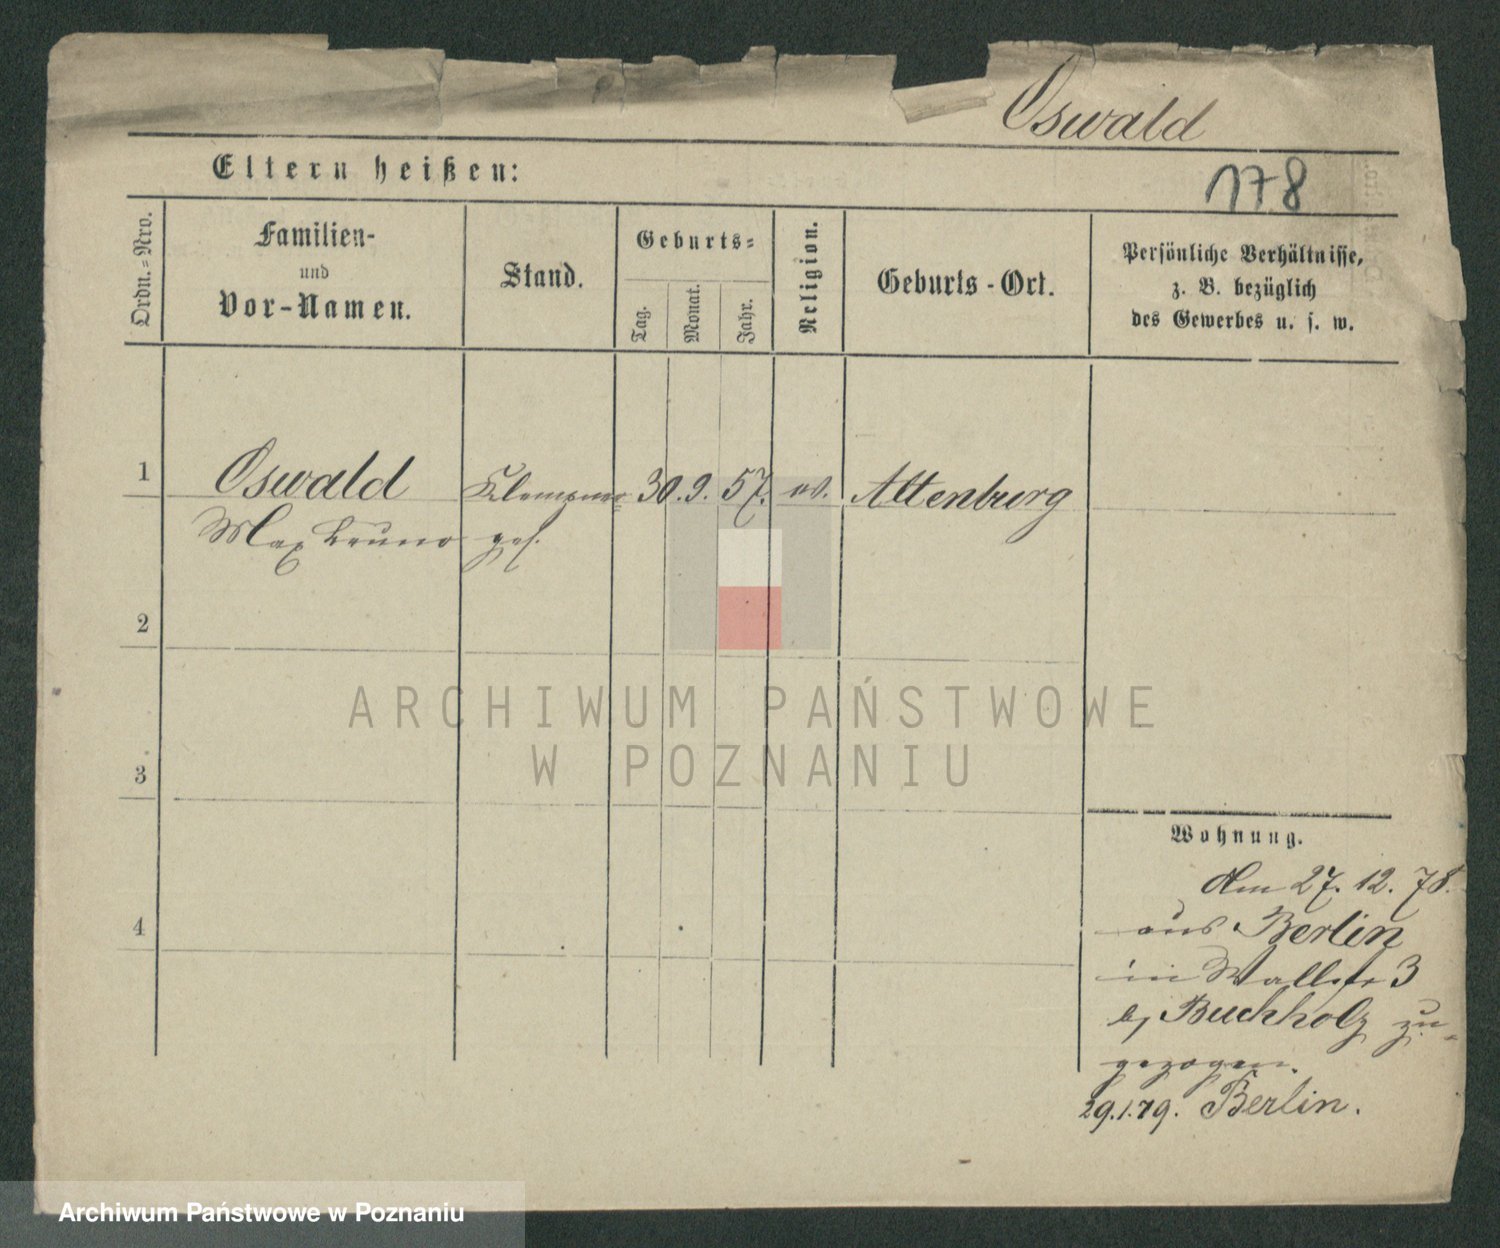 Oswald
Eltern heißen:
178
Ordn.-Nro.
Familien-
und
Vor-Namen.
Stand.
Geburts-
Tag.
Monat.
Jahr.
Religion.
Geburts-Ort.
Persönliche Verhältnisse,
z. B. bezüglich
des Gewerbes u. s. w.
1 Oswald Klempner 30. 9. 57. ev. Altenburg
Max Bruno ges.
2
3
4
ARCHIWUM PAŃSTWOWE
W POZNANIU
Wohnung.
Am 27. 12. 78.
aus Berlin
in Wallstr 3
by Buchholz zu-
gezogen.
29.1.79. Berlin.
Archiwum Państwowe w Poznaniu